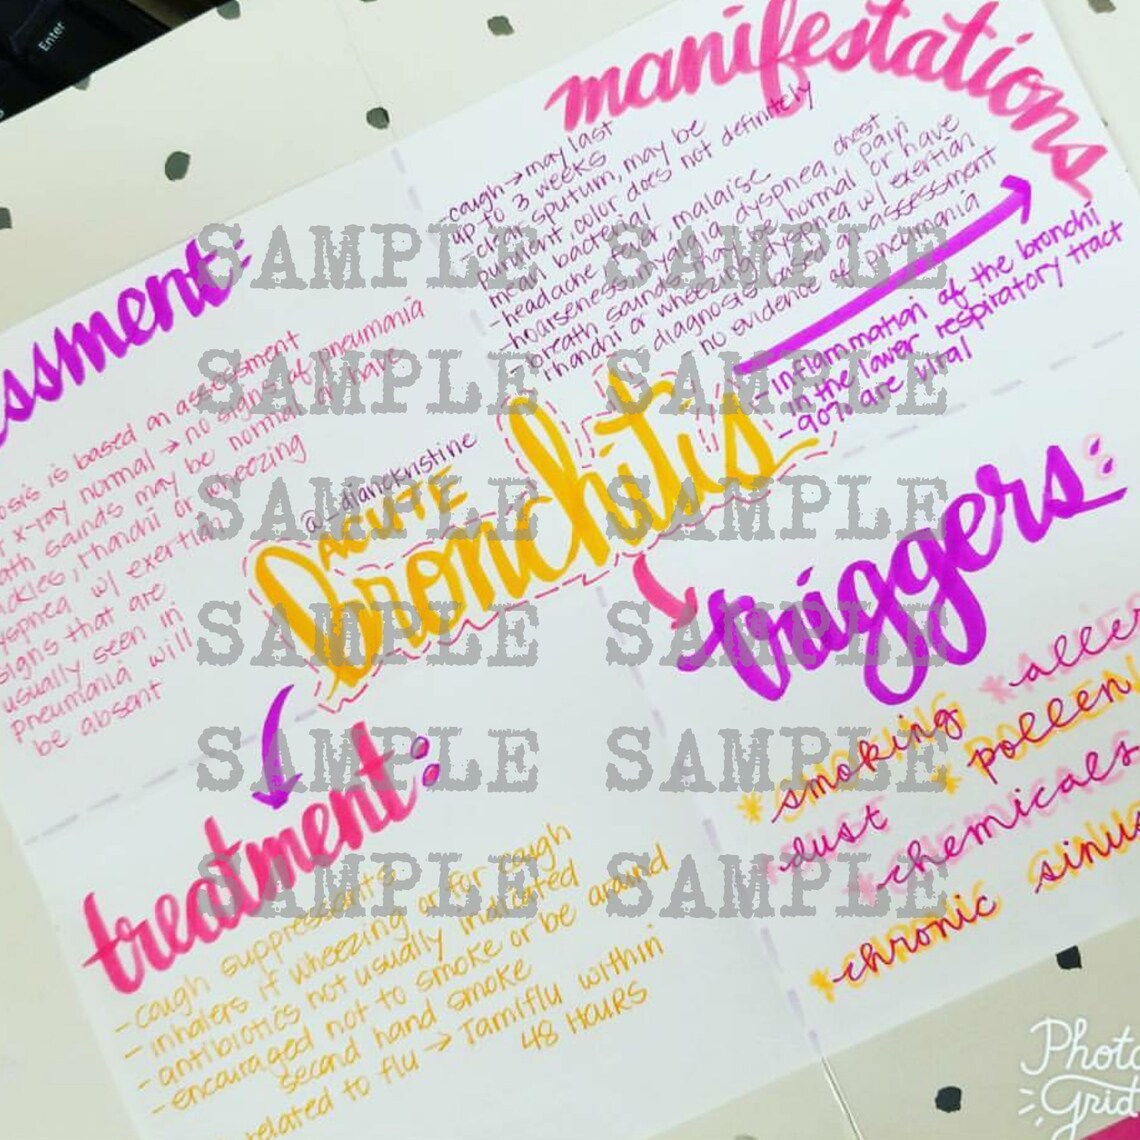 Enter
manifestations
-cough → may last
up to 3 weeks
-clear sputum, may be
purulant, color does not definitely
mean bacterial
-headache, fever, malaise
-hoarseness, myalgia, dyspnea, chest
pain
-breath sounds may be normal or have
rhonchi or wheezing, dyspnea w/ exertion
-diagnosis based on assessment
no evidence of pneumonia
-inflammation of the bronchi
in the lower respiratory tract
-90% are viral
ssment:
osis is based on an assessment
x-ray normal → no signs of pneumonia
ath sounds may be normal or have
ckles, rhonchi or wheezing
yspnea w/ exertion
signs that are
usually seen in
pneumonia will
be absent
@_dianekristine
ACUTE
bronchitis
triggers:
*smoking
*pollen
dust
*chemicals
*chronic sinus
treatment:
-cough suppressants
-inhalers if wheezing or for cough
-antibiotics not usually indicated
-encouraged not to smoke or be around
second hand smoke
related to flu → Tamiflu within
48 HOURS
SAMPLE SAMPLE
SAMPLE SAMPLE
SAMPLE SAMPLE
SAMPLE SAMPLE
SAMPLE SAMPLE
SAMPLE SAMPLE
Photo
Grid